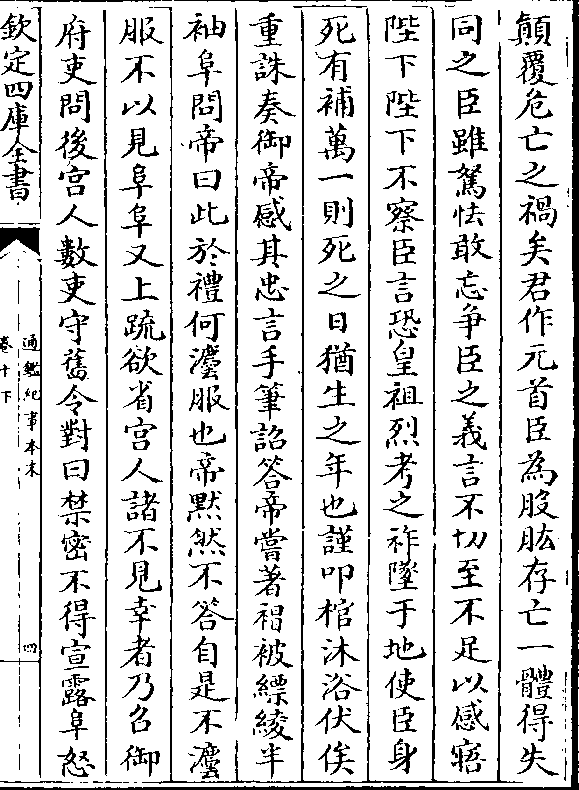 顛覆危亡之禍矣君作元首臣為股肱存亡一體得失
同之臣雖駑怯敢忘爭臣之義言不切至不足以感寤
陛下陛下不察臣言恐皇祖烈考之祚墜于地使臣身
死有補萬一則死之日猶生之年也謹叩棺沐浴伏俟
重誅奏御帝感其忠言手筆詔答帝嘗著㡌被縹綾半
袖阜問帝曰此於禮何灋服也帝默然不答自是不灋
服不以見阜阜又上疏欲省宫人諸不見幸者乃召御
府吏問後宫人數吏守舊令對曰禁密不得宣露阜怒
欽定四庫全書
通鑑紀事本末
卷十下
四